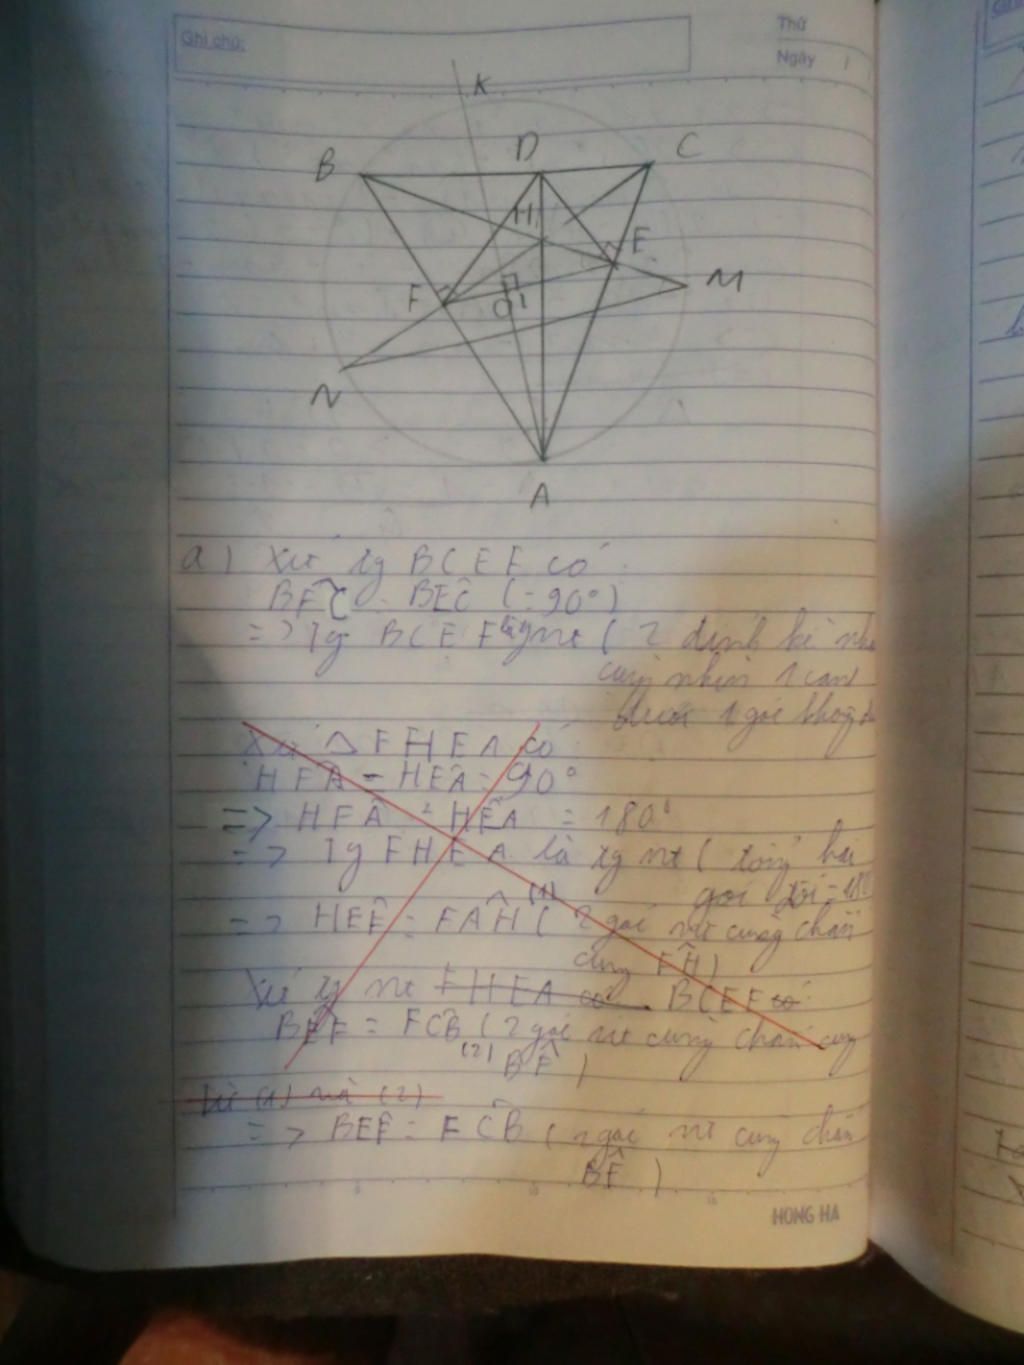 Ghi chú:
Thứ
Ngày /
K
B
D
C
H
E
F
O
1
M
N
A
a) Xét tg BCEF có:
BFC = BEC (=90°)
=> Tg BCEF là tg nt ( 2 đỉnh kề nha
cùng nhìn 1 cạn
dưới 1 góc không đ
Xét △ FHEA có:
HFA = HEA = 90°
=> HFA + HEA = 180°
=> Tg FHEA là tg nt ( tổng hai
góc đối = 180
=> HEF = FAH (1) ( 2 góc nt cùng chắn
cung FH)
Xét tg nt FHEA có BCEF có:
BEF = FCB ( 2 góc nt cùng chắn cung
(2) BF )
Từ (1) và (2)
=> BEF = FCB ( 2 góc nt cùng chắn
BF )
HONG HA